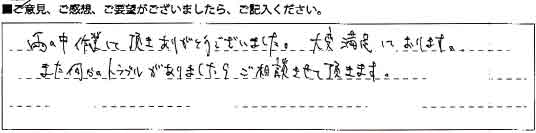 ■ご意見、ご感想、ご要望がございましたら、ご記入ください。
雨の中作業して頂きありがとうございました。大変満足しております。
また何かのトラブルがありましたらご相談させて頂きます。